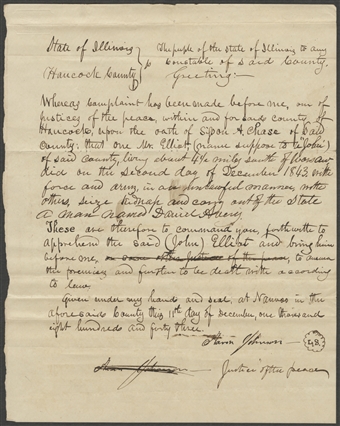 State of Illinois } The people of the state of Illinois to any
Hancock County } Constable of said County.
Greeting:—
Whereas Complaint has been made before me, one of
justices of the peace, within and for said county of
Hancock, upon the oath of Sisson A. Chase of said
County: that one Mr. Elliot (name suppose to be John)
of said County, living about 4½ miles south of Warsaw,
did on the second day of December 1843, with
force and arms, in an unlawful manner, with
others, seize kidnap and carry out of the State
a man named Daniel Avery
These are therefore to command you, forthwith to
apprehend the said (John) Elliot and bring him
before me, or some other Justice of the peace, to answer
the premises and further to be dealt with according
to law.
Given under my hand and seal, at Nauvoo in the
aforesaid County this 11th day of December, one thousand
eight hundred and forty three.
Aaron Johnson L.S.
Aaron Johnson Justice of the peace